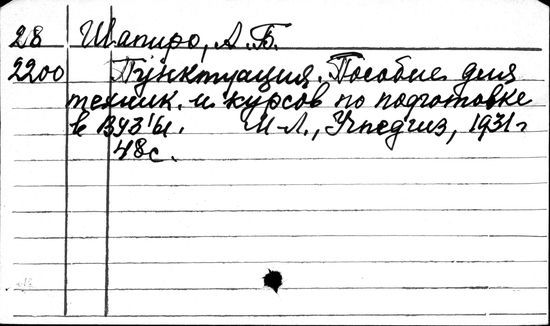 28 Шапиро, А.Б.
2200 Пунктуация. Пособие для
техник. и курсов по подготовке
в ВУЗ'ы. М-Л., Учпедгиз, 1931г
48с.